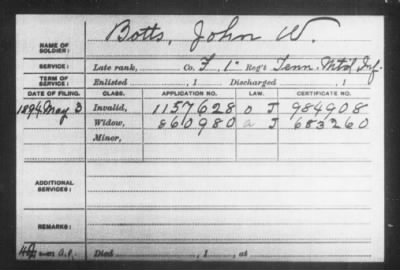 Botts, John W.
NAME OF SOLDIER:
SERVICE: Late rank, Co. F, 1" Reg't Tenn. Mt'd Inf.
TERM OF SERVICE: Enlisted , 1 Discharged , 1
DATE OF FILING. CLASS. APPLICATION NO. LAW. CERTIFICATE NO.
1894 May 3 Invalid, 1157628 J 984908
Widow, 860980 J 683260
Minor,
ADDITIONAL SERVICES:
REMARKS:
Died , 1 , at